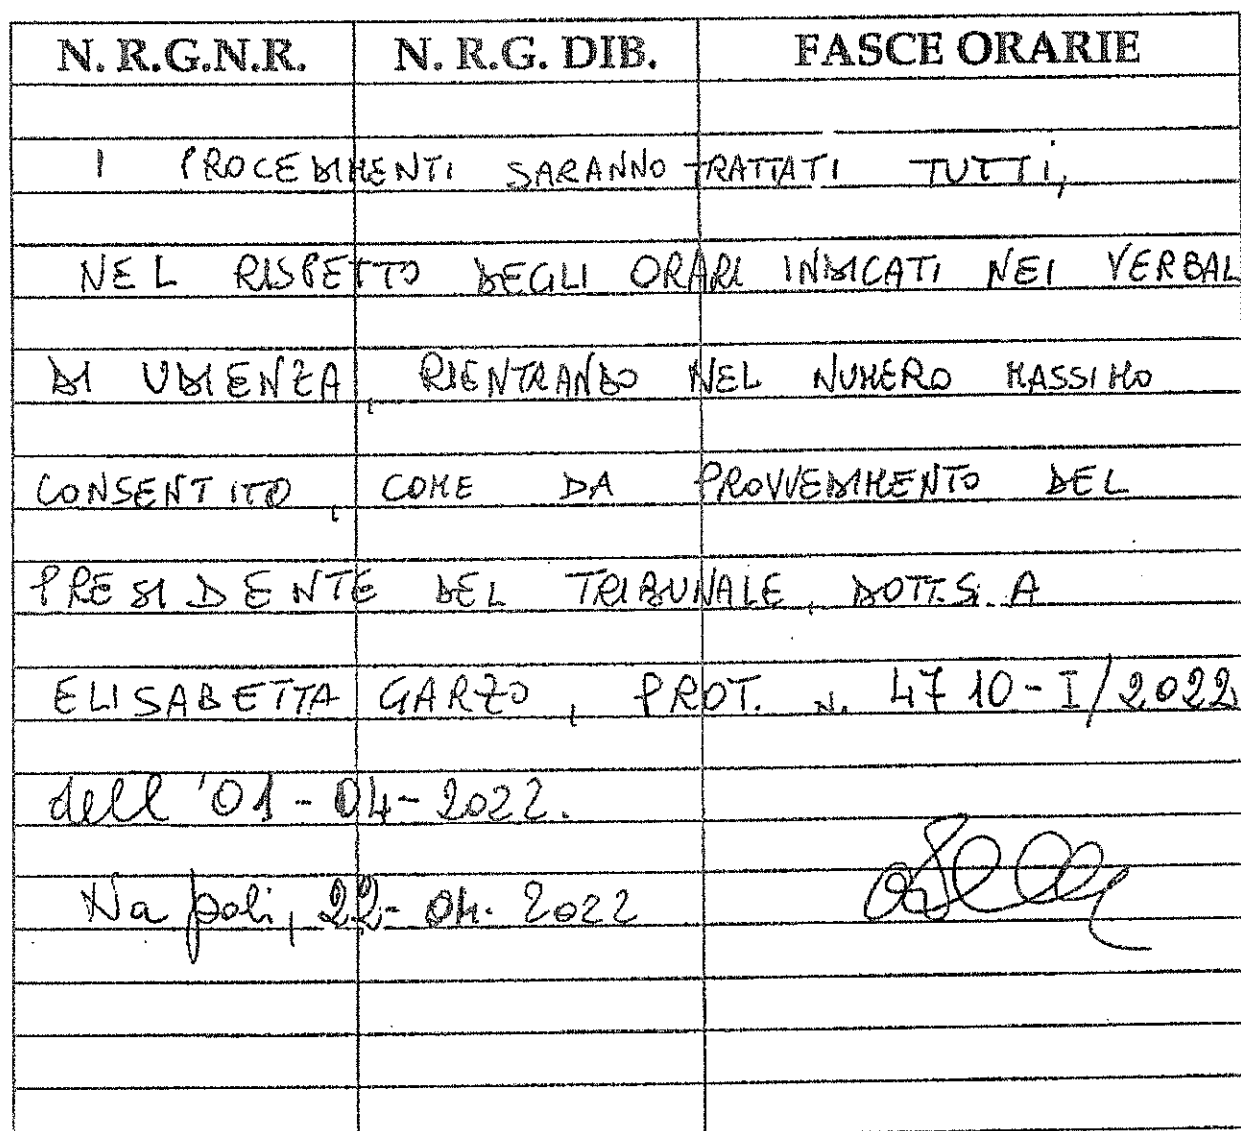 N. R.G.N.R. N. R.G. DIB. FASCE ORARIE
I PROCEDIMENTI SARANNO TRATTATI TUTTI,
NEL RISPETTO DEGLI ORARI INDICATI NEI VERBAL
DI UDIENZA, RIENTRANDO NEL NUMERO MASSIMO
CONSENTITO, COME DA PROVVEDIMENTO DEL
PRESIDENTE DEL TRIBUNALE, DOTT.SSA
ELISABETTA GARZO, PROT. N. 4710-I/2022
dell'01-04-2022.
Napoli, 22-04-2022